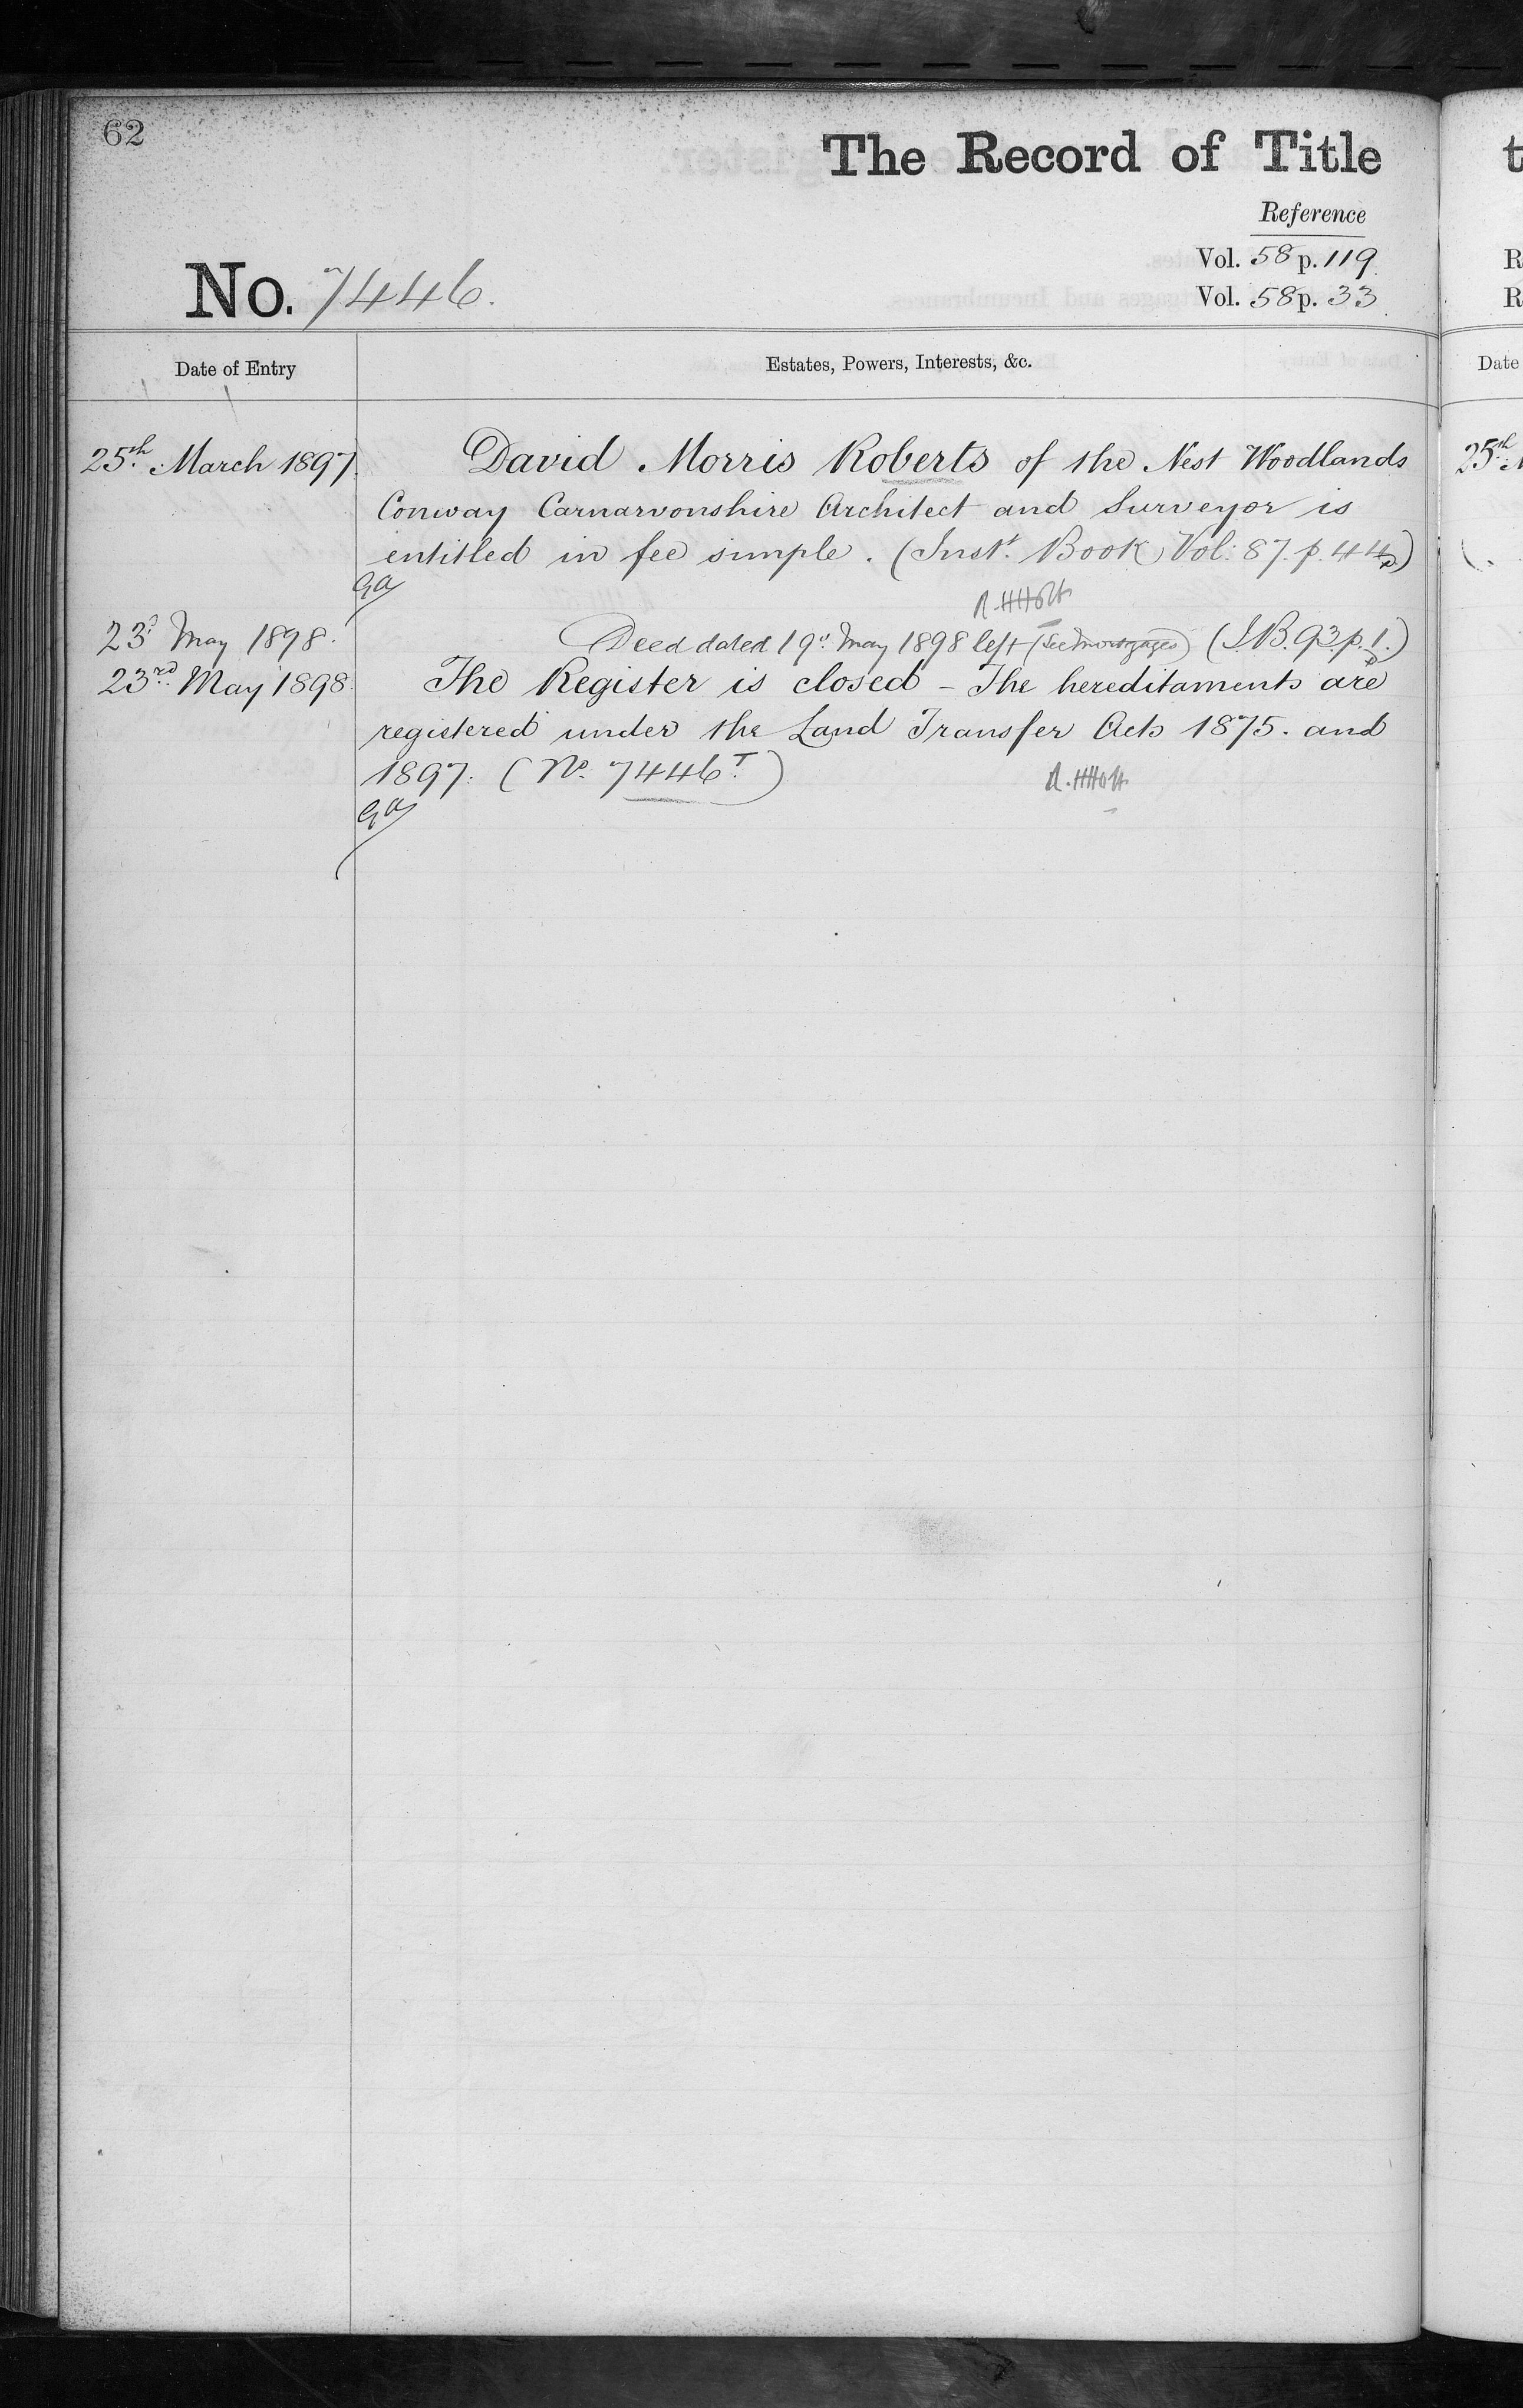 62
The Record of Title
Reference
Vol. 58 p. 119
No. 7446.
Vol. 58 p. 33
Date of Entry
Estates, Powers, Interests, &c.
25th March 1897.
David Morris Roberts of the Nest Woodlands
Conway Carnarvonshire Architect and Surveyor is
entitled in fee simple. (Inst. Book Vol: 87. p. 44)
R.H.Holt
23d May 1898.
Deed dated 19th May 1898 left (See mortgages) (I.B. 93 p. 1.)
23rd May 1898.
The Register is closed – The hereditaments are
registered under the Land Transfer Acts 1875. and
1897. (No. 7446T.)
R.H.Holt
t
R
R
Date
25th